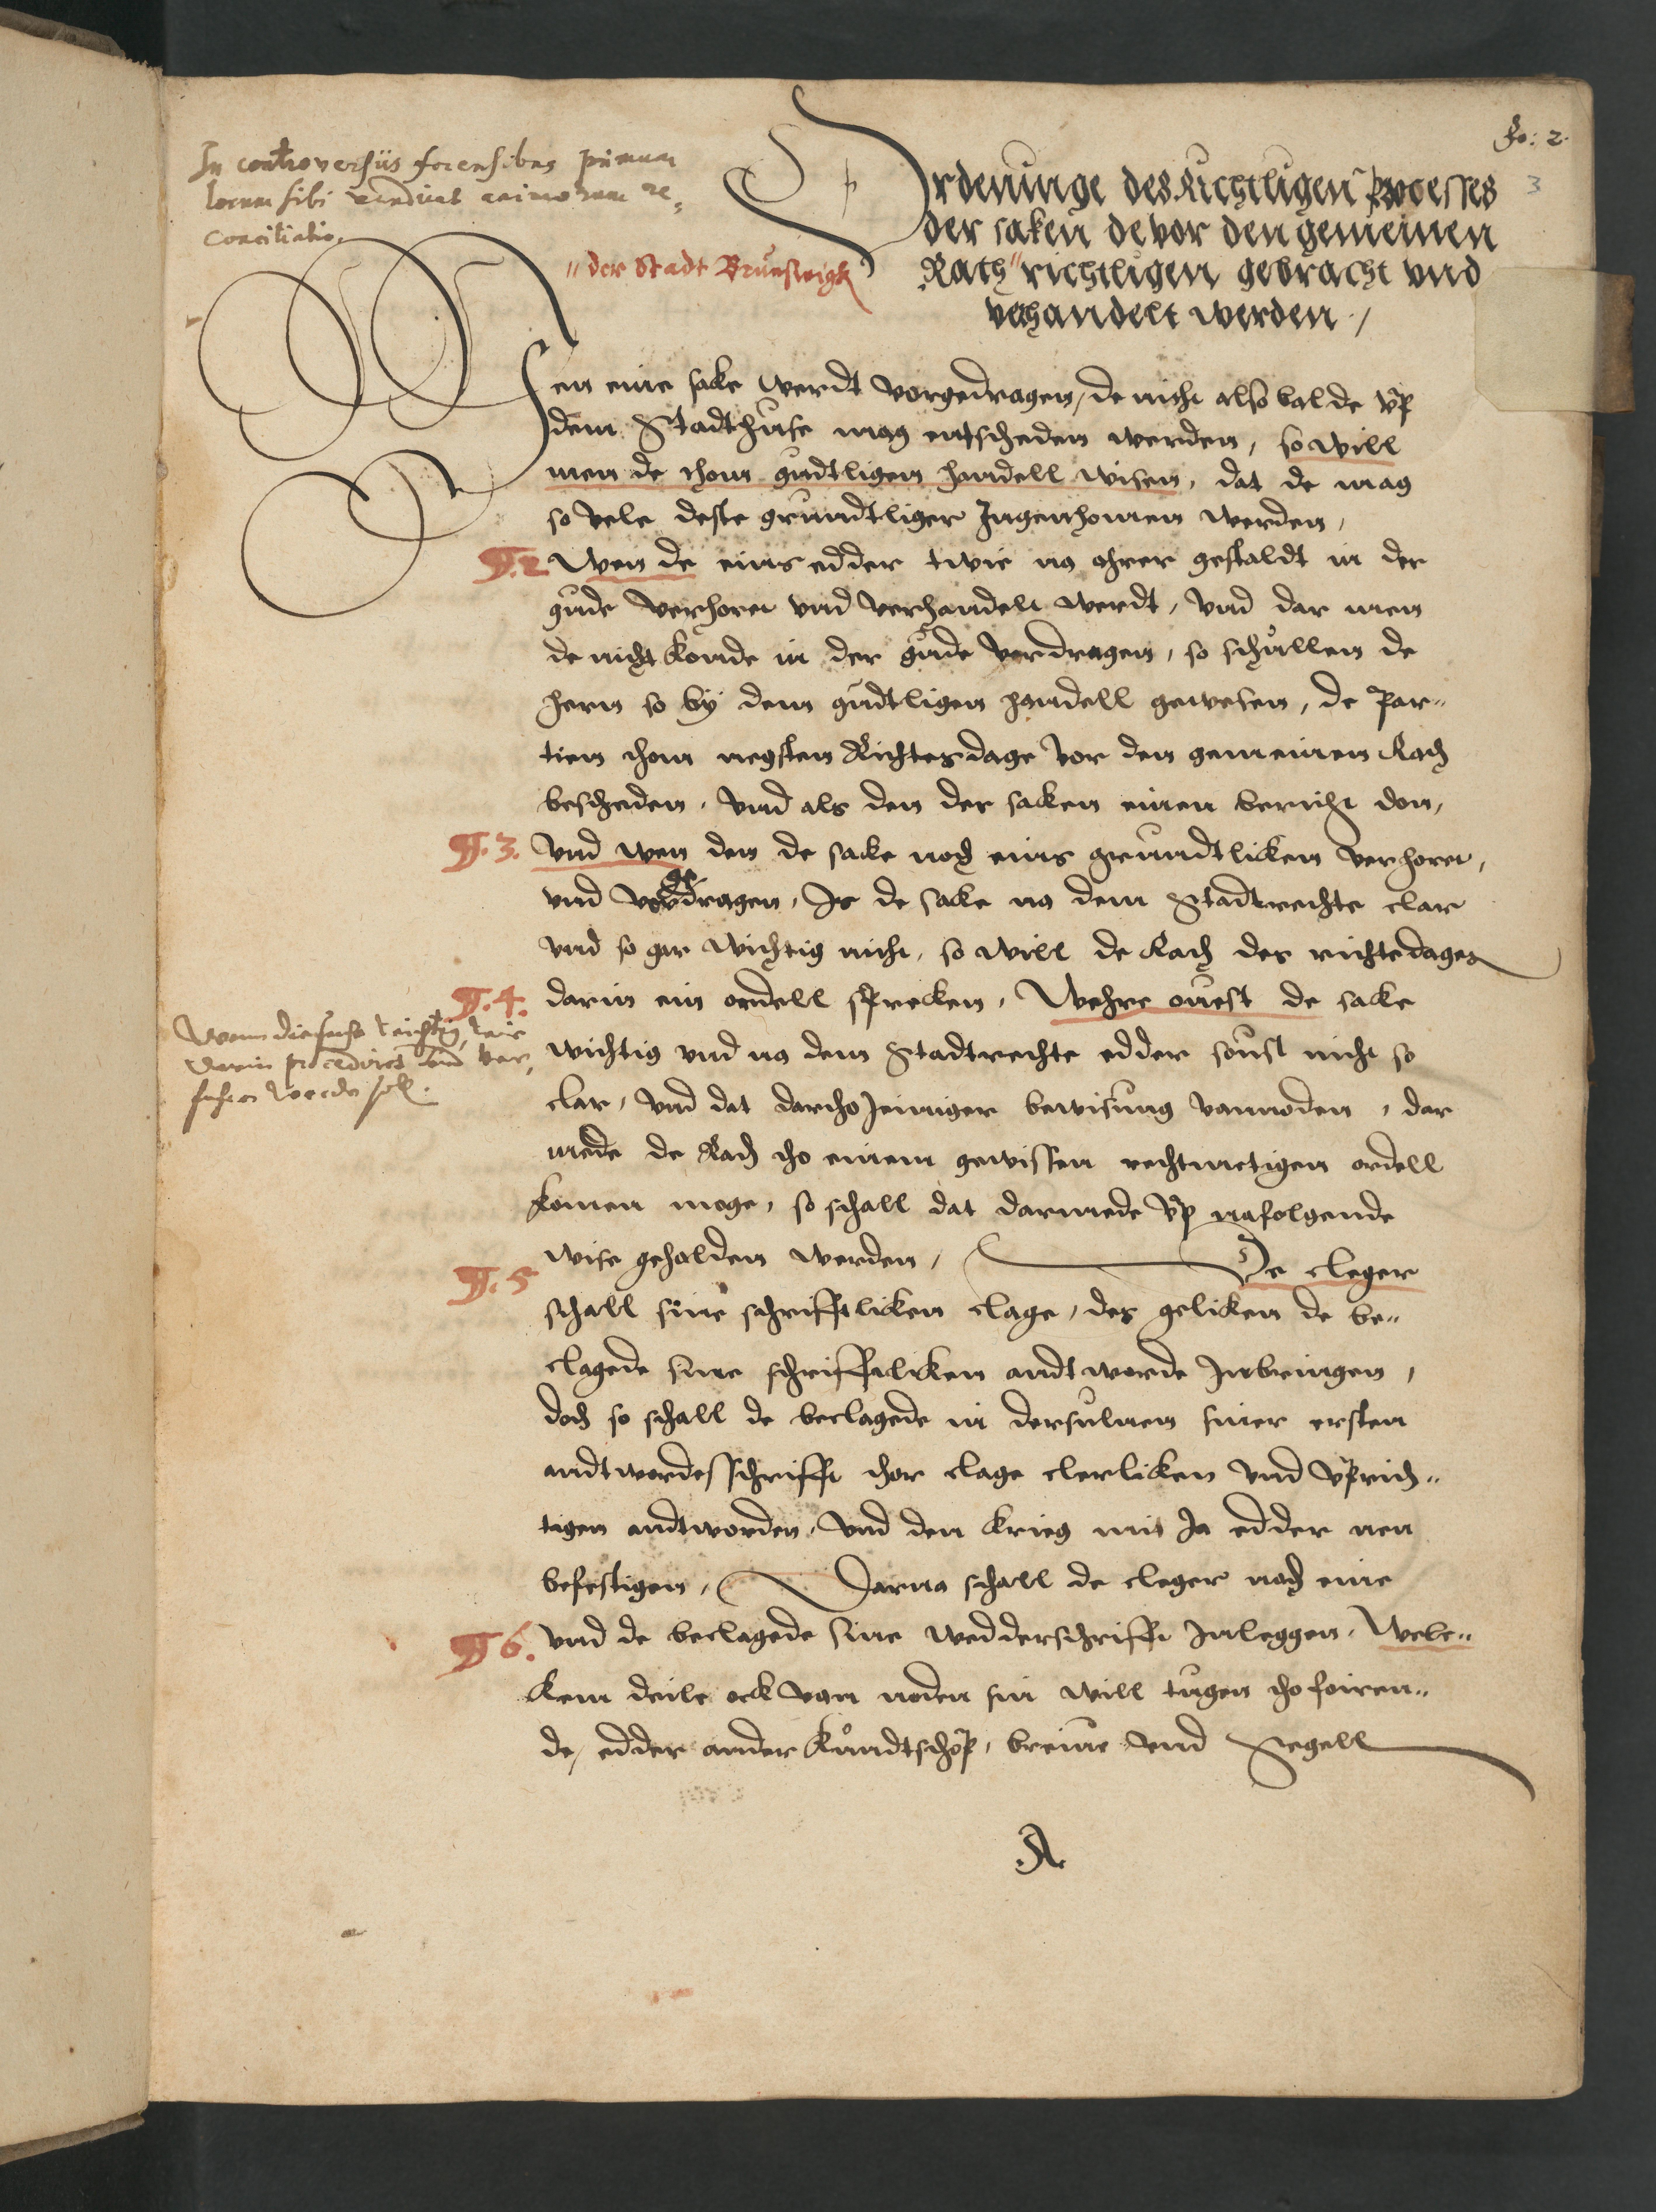 fo: 2.
3
In controversiis forensibus primum
locum sibi vendicat animorum re,
conciliatio.
Ordenunge des Richtligen Processes
der saken de vor den gemeinen
Rath " richtligen gebracht vnd
verhandelt werden /
" der Stadt Brunswigk
Wen eine sake werdt vorgedragen, de nicht also balde vp
dem Stadthuse mag entscheden werden, so will
men de thom gudtligen handell wisen, dat de mag
so vele deste grundtliger Ingenhomen werden,
§. 2 Wen de eins edder twie na ohrer gestaldt in der
gude verhoret vnd verhandelt werdt, vnd dar men
de nicht konde in der gude verdragen, so schullen de
hern so by dem gudtligen handell gewesen, de Par"
tien thom negsten Richtesdage vor den gemeinen Rath
bescheden, vnd als den der saken einen bericht don,
§. 3. Vnd wen den de sake noch eins grundtliken verhoret,
vnd vorgedragen, Is de sake na dem Stadtrechte clar
vnd so gar wichtig nicht, so will de Rath des richtedages
§. 4. darin ein ordell spreken, Wehre ouest de sake
wichtig vnd na dem Stadtrechte edder sonst nicht so
clar, vnd dat dartho Jenniger bewisung vannoden, dar
mede de Rath tho einem gewissen rechtmetigen ordell
komen moge, so schall dat darmede vp nafolgende
wise geholden werden,
Wenn die sache wichtig, wie
darin procedirt und ver,
fahren werden soll.
§. 5 De cleger
schall sine schrifftliken clage, des geliken de be"
clagede sine schrifftliken andtworde Inbringen,
doch so schall de beclagede in dersuluen siner ersten
andtwordesschrifft thor clage clerliken vnd vprich"
tigen andtworden, vnd den krieg mit Ja edder nen
befestigen, Darna schall de cleger noch eine
§ 6. vnd de beclagede sine wedderschrifft Inleggen, Wele"
kem deile ock van noden sin will tugen tho foiren"
de, edder ander kundtschop, breiue vnd Segell
A